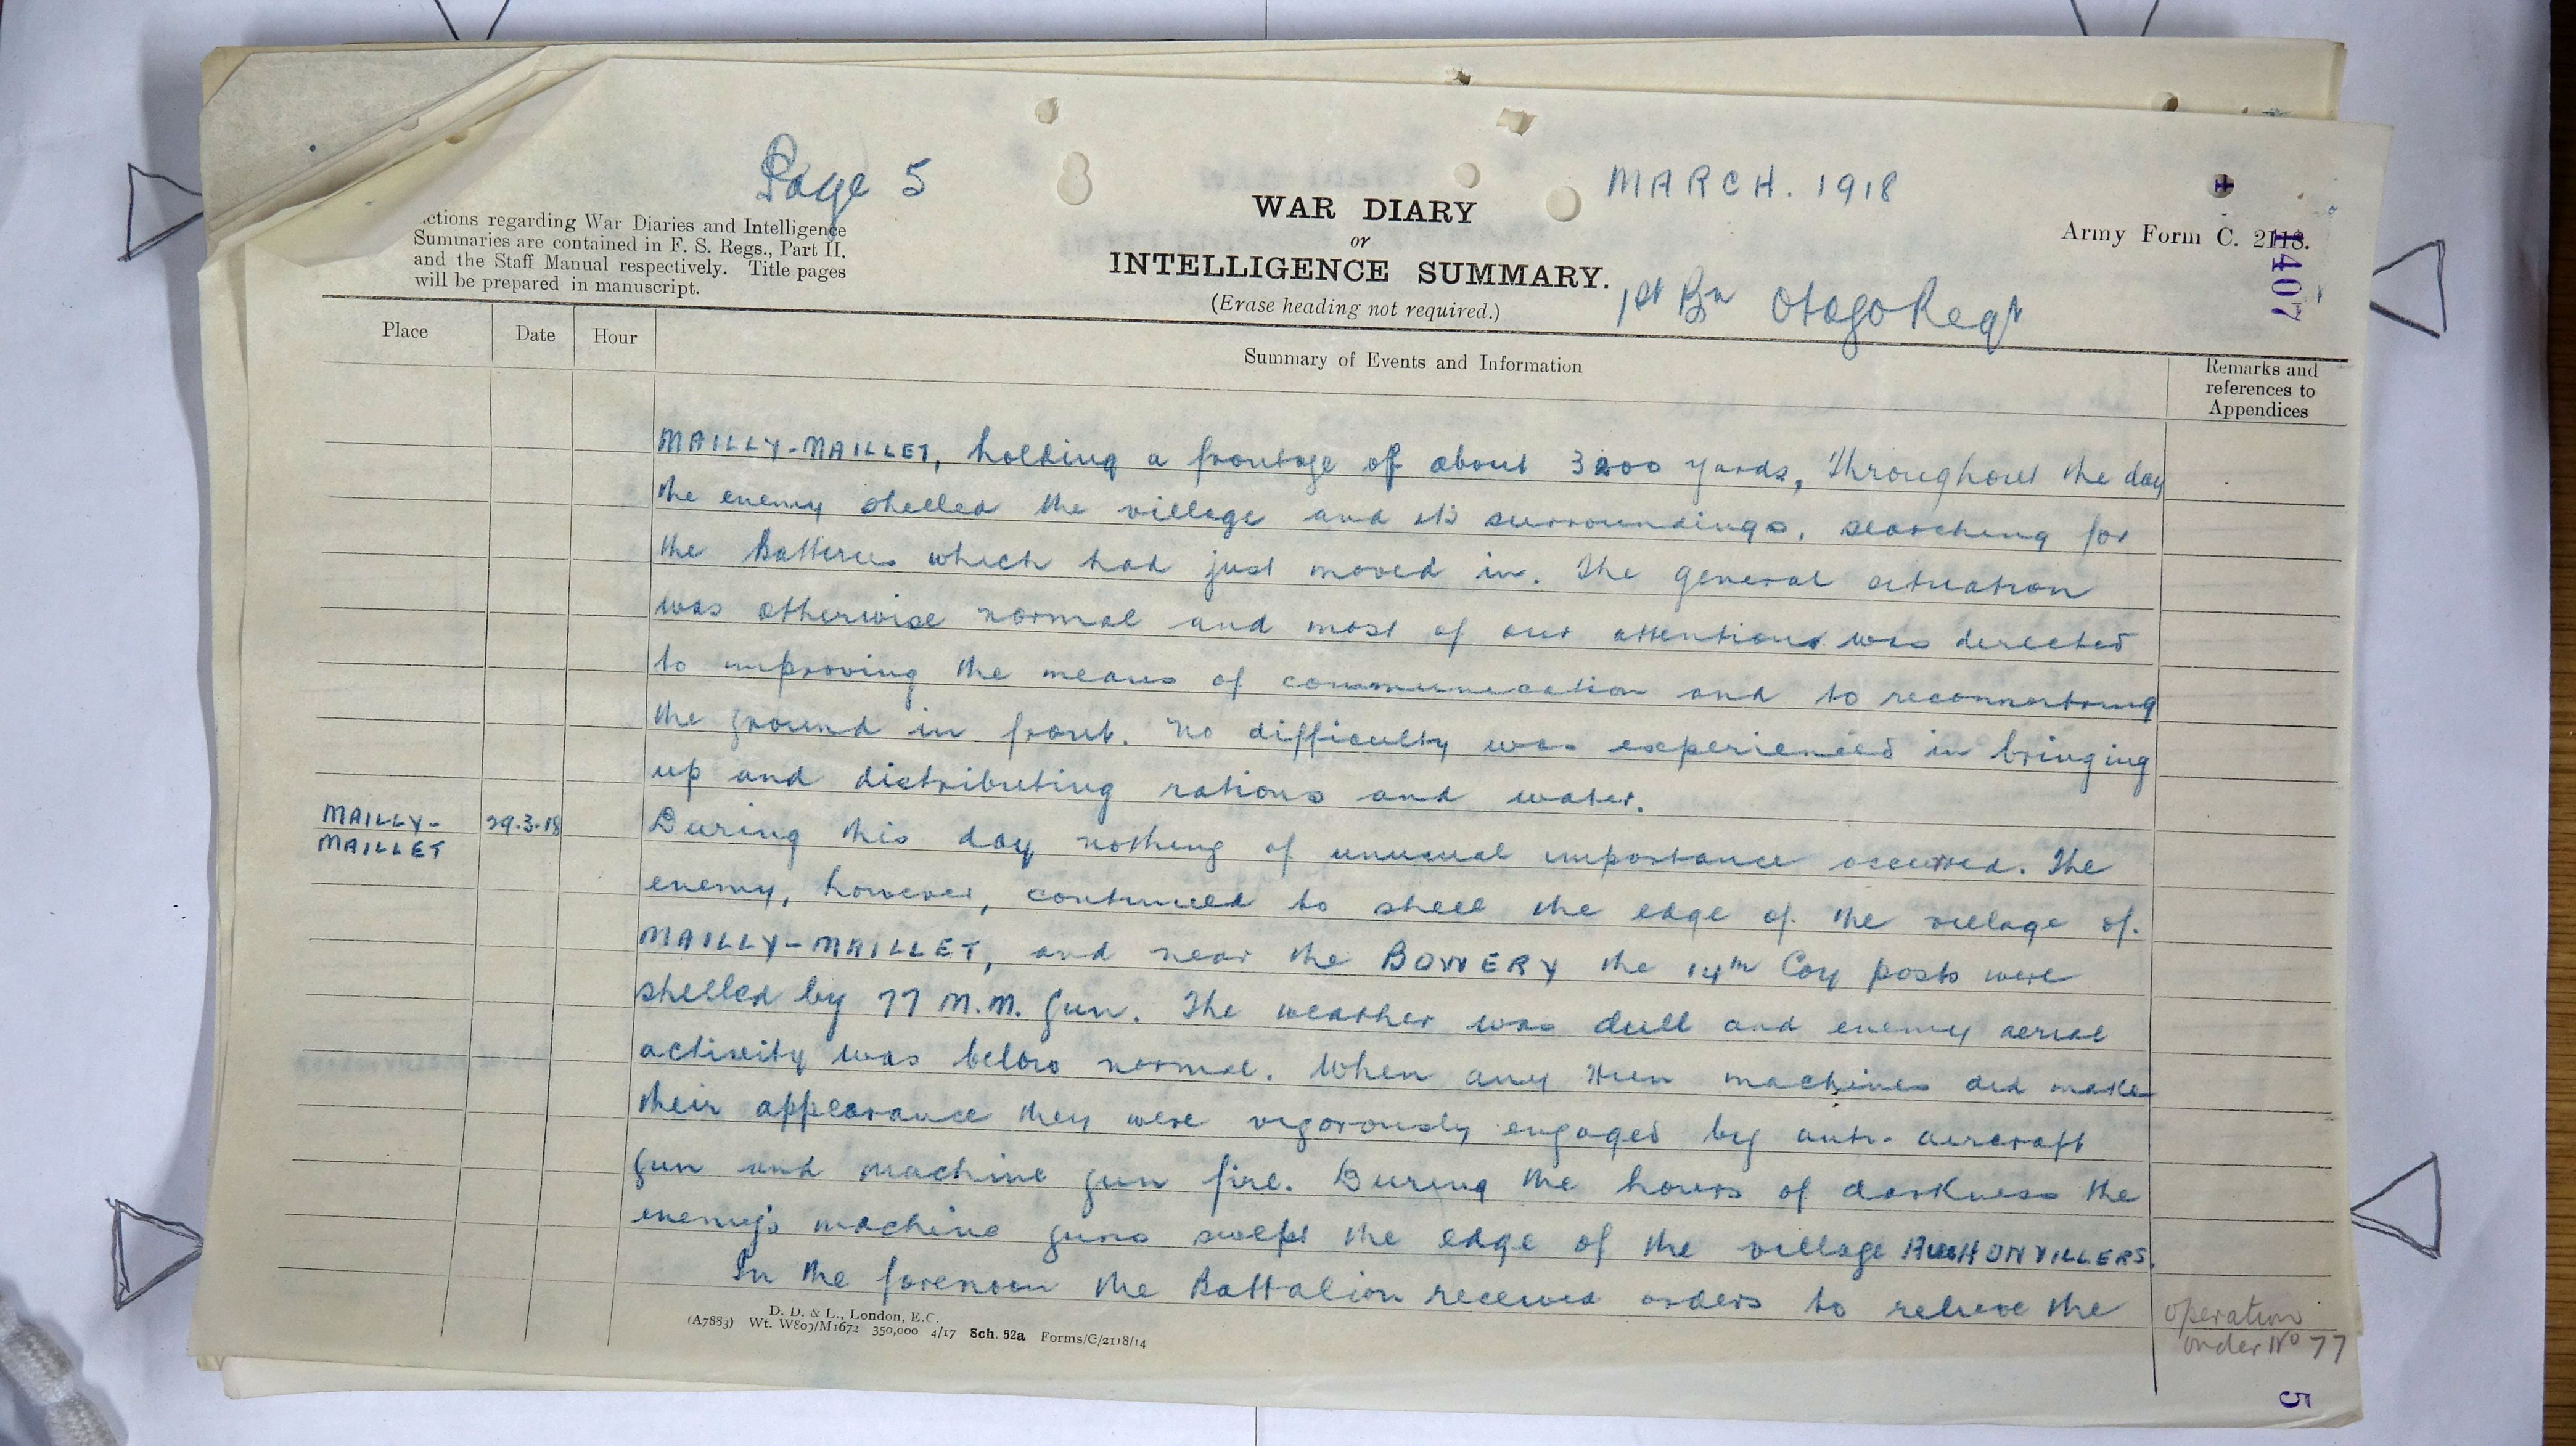 Page 5
MARCH. 1918
WAR DIARY
or
INTELLIGENCE SUMMARY.
(Erase heading not required.)
Army Form C. 2118.
1407
ctions regarding War Diaries and Intelligence
Summaries are contained in F. S. Regs., Part II.
and the Staff Manual respectively. Title pages
will be prepared in manuscript.
1st Bn Otago Regt
Place
Date
Hour
Summary of Events and Information
Remarks and
references to
Appendices
MAILLY-MAILLET, holding a frontage of about 3200 yards, Throughout the day
the enemy shelled the village and its surroundings, searching for
the Batteries which had just moved in. The general situation
was otherwise normal and most of our attention was directed
to improving the means of communication and to reconnoitring
the ground in front. No difficulty was experienced in bringing
up and distributing rations and water.
MAILLY-
MAILLET
29.3.18
During this day nothing of unusual importance occurred. The
enemy, however, continued to shell the edge of the village of
MAILLY-MAILLET, and near the BOWERY the 14th Coy posts were
shelled by 77 M.M. Gun. The weather was dull and enemy aerial
activity was below normal. When any Hun machines did make
their appearance they were vigorously engaged by anti-aircraft
gun and machine gun fire. During the hours of darkness the
enemy's machine guns swept the edge of the village
In the forenoon the Battalion received orders to relieve the
operation
order No 77
D. D. & L., London, E.C.
(A7883) Wt. W809/M1672 350,000 4/17 Sch. 52a Forms/C/2118/14
5